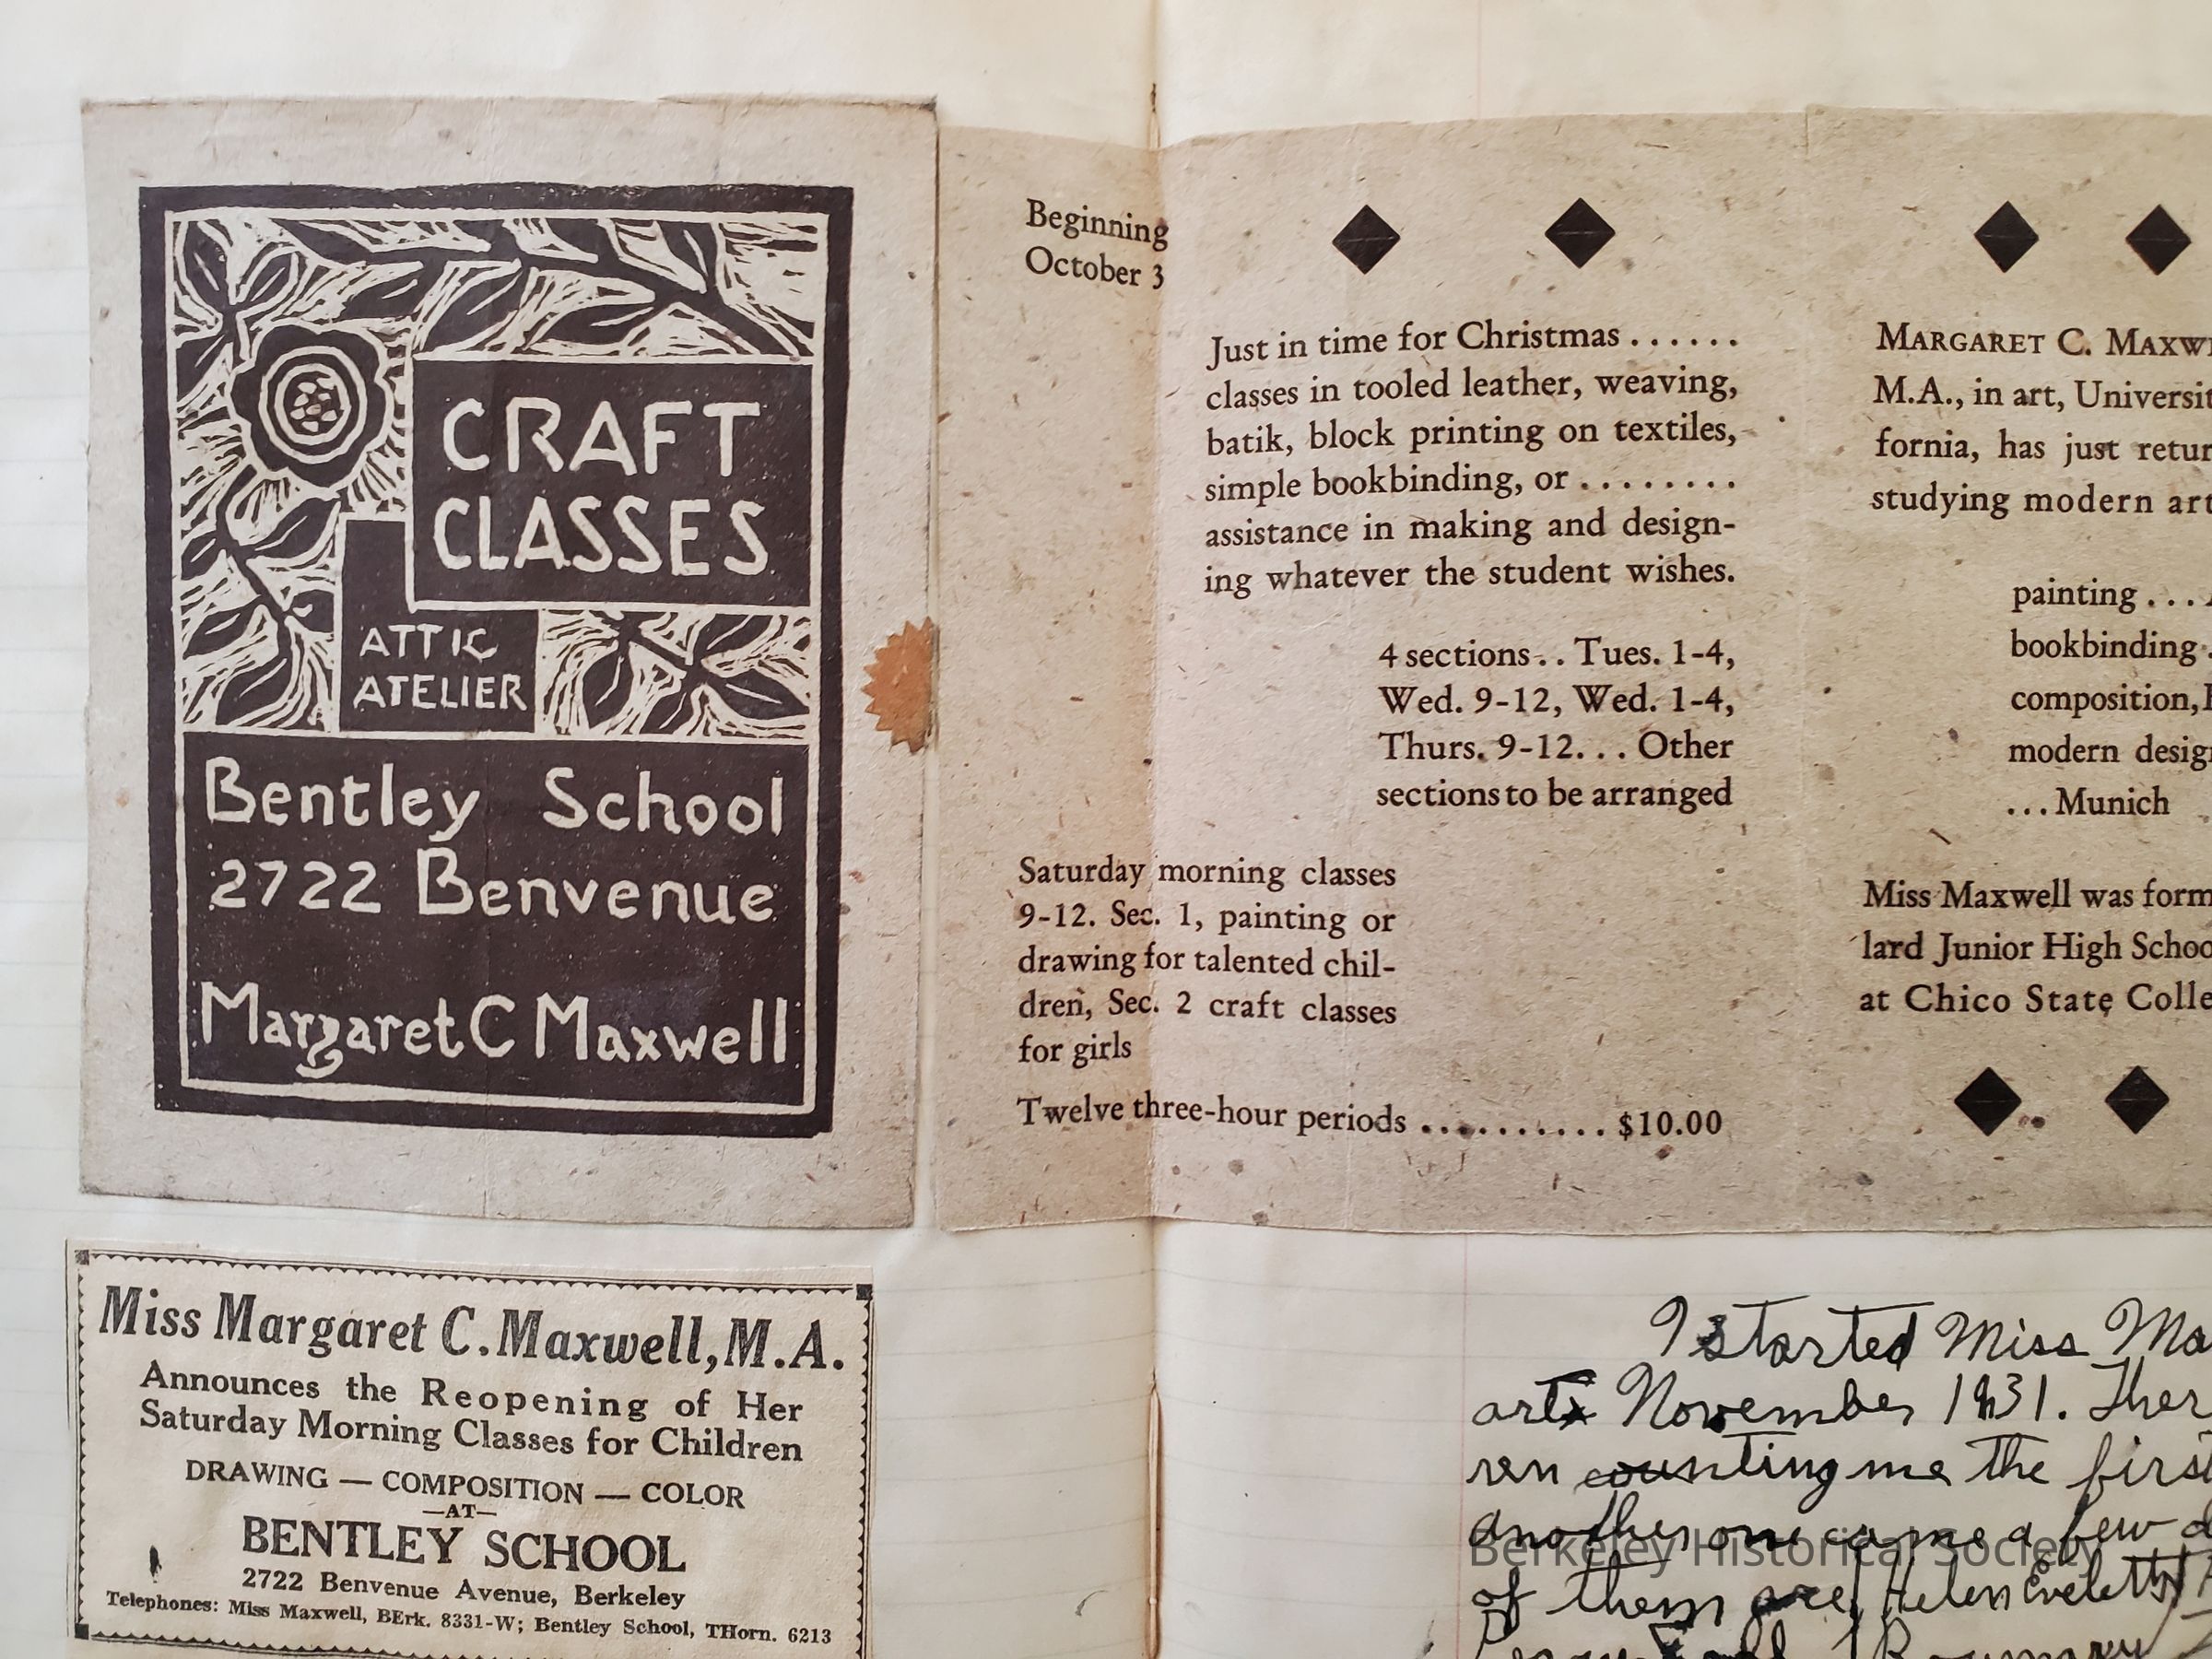 CRAFT
CLASSES
ATTIC
ATELIER
Bentley School
2722 Benvenue
Margaret C Maxwell
Beginning
October 3
Just in time for Christmas ......
classes in tooled leather, weaving,
batik, block printing on textiles,
simple bookbinding, or ........
assistance in making and design-
ing whatever the student wishes.
4 sections .. Tues. 1-4,
Wed. 9-12, Wed. 1-4,
Thurs. 9-12... Other
sections to be arranged
Saturday morning classes
9-12. Sec. 1, painting or
drawing for talented chil-
dren, Sec. 2 craft classes
for girls
Twelve three-hour periods .......... $10.00
MARGARET C. MAXW
M.A., in art, Universit
fornia, has just retur
studying modern art
painting ...
bookbinding .
composition,
modern desig
... Munich
Miss Maxwell was form
lard Junior High Schoo
at Chico State Colle
Miss Margaret C. Maxwell, M.A.
Announces the Reopening of Her
Saturday Morning Classes for Children
DRAWING — COMPOSITION — COLOR
—AT—
BENTLEY SCHOOL
2722 Benvenue Avenue, Berkeley
Telephones: Miss Maxwell, BErk. 8331-W; Bentley School, THorn. 6213
I started Miss Ma
art November 1931. Ther
ren counting me the first
another one came a few d
of them are Helen Eveleth
Berkeley Historical Society